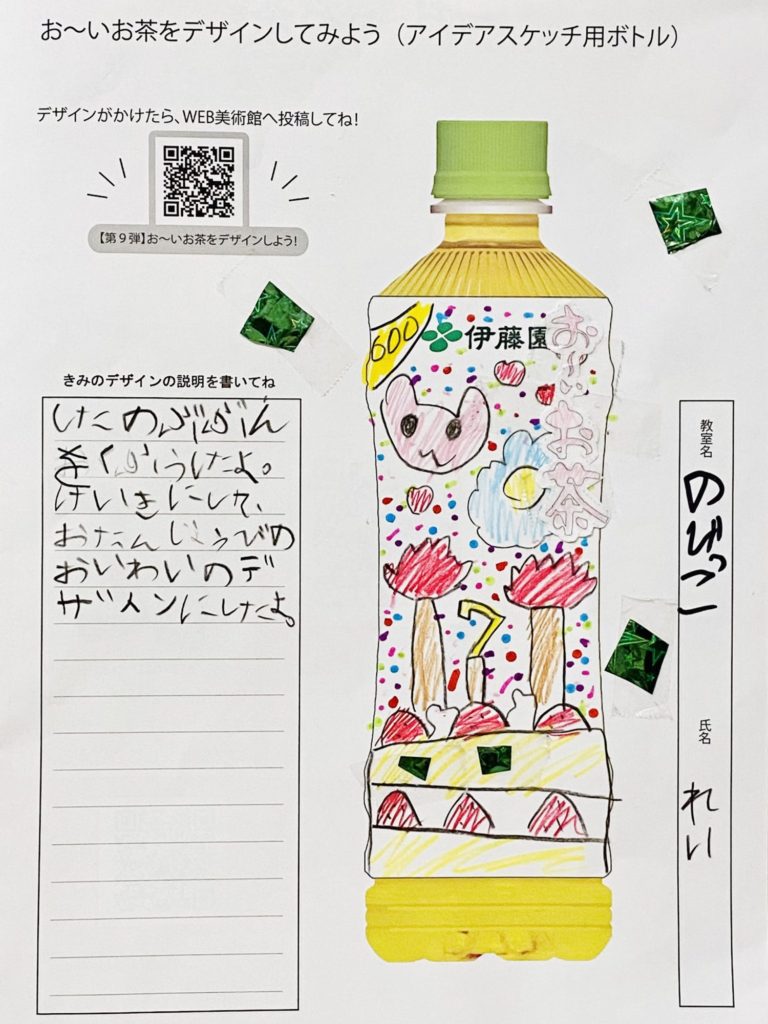 お〜いお茶をデザインしてみよう（アイデアスケッチ用ボトル）
デザインがかけたら、WEB美術館へ投稿してね！
【第９弾】お〜いお茶をデザインしよう！
きみのデザインの説明を書いてね
したのぶぶん
をくふうしたよ。
けいきにして、
おたんじょうびの
おいわいのデ
ザインにしたよ。
600
伊藤園
お〜いお茶
7
教室名
のびっこ
氏名
れい